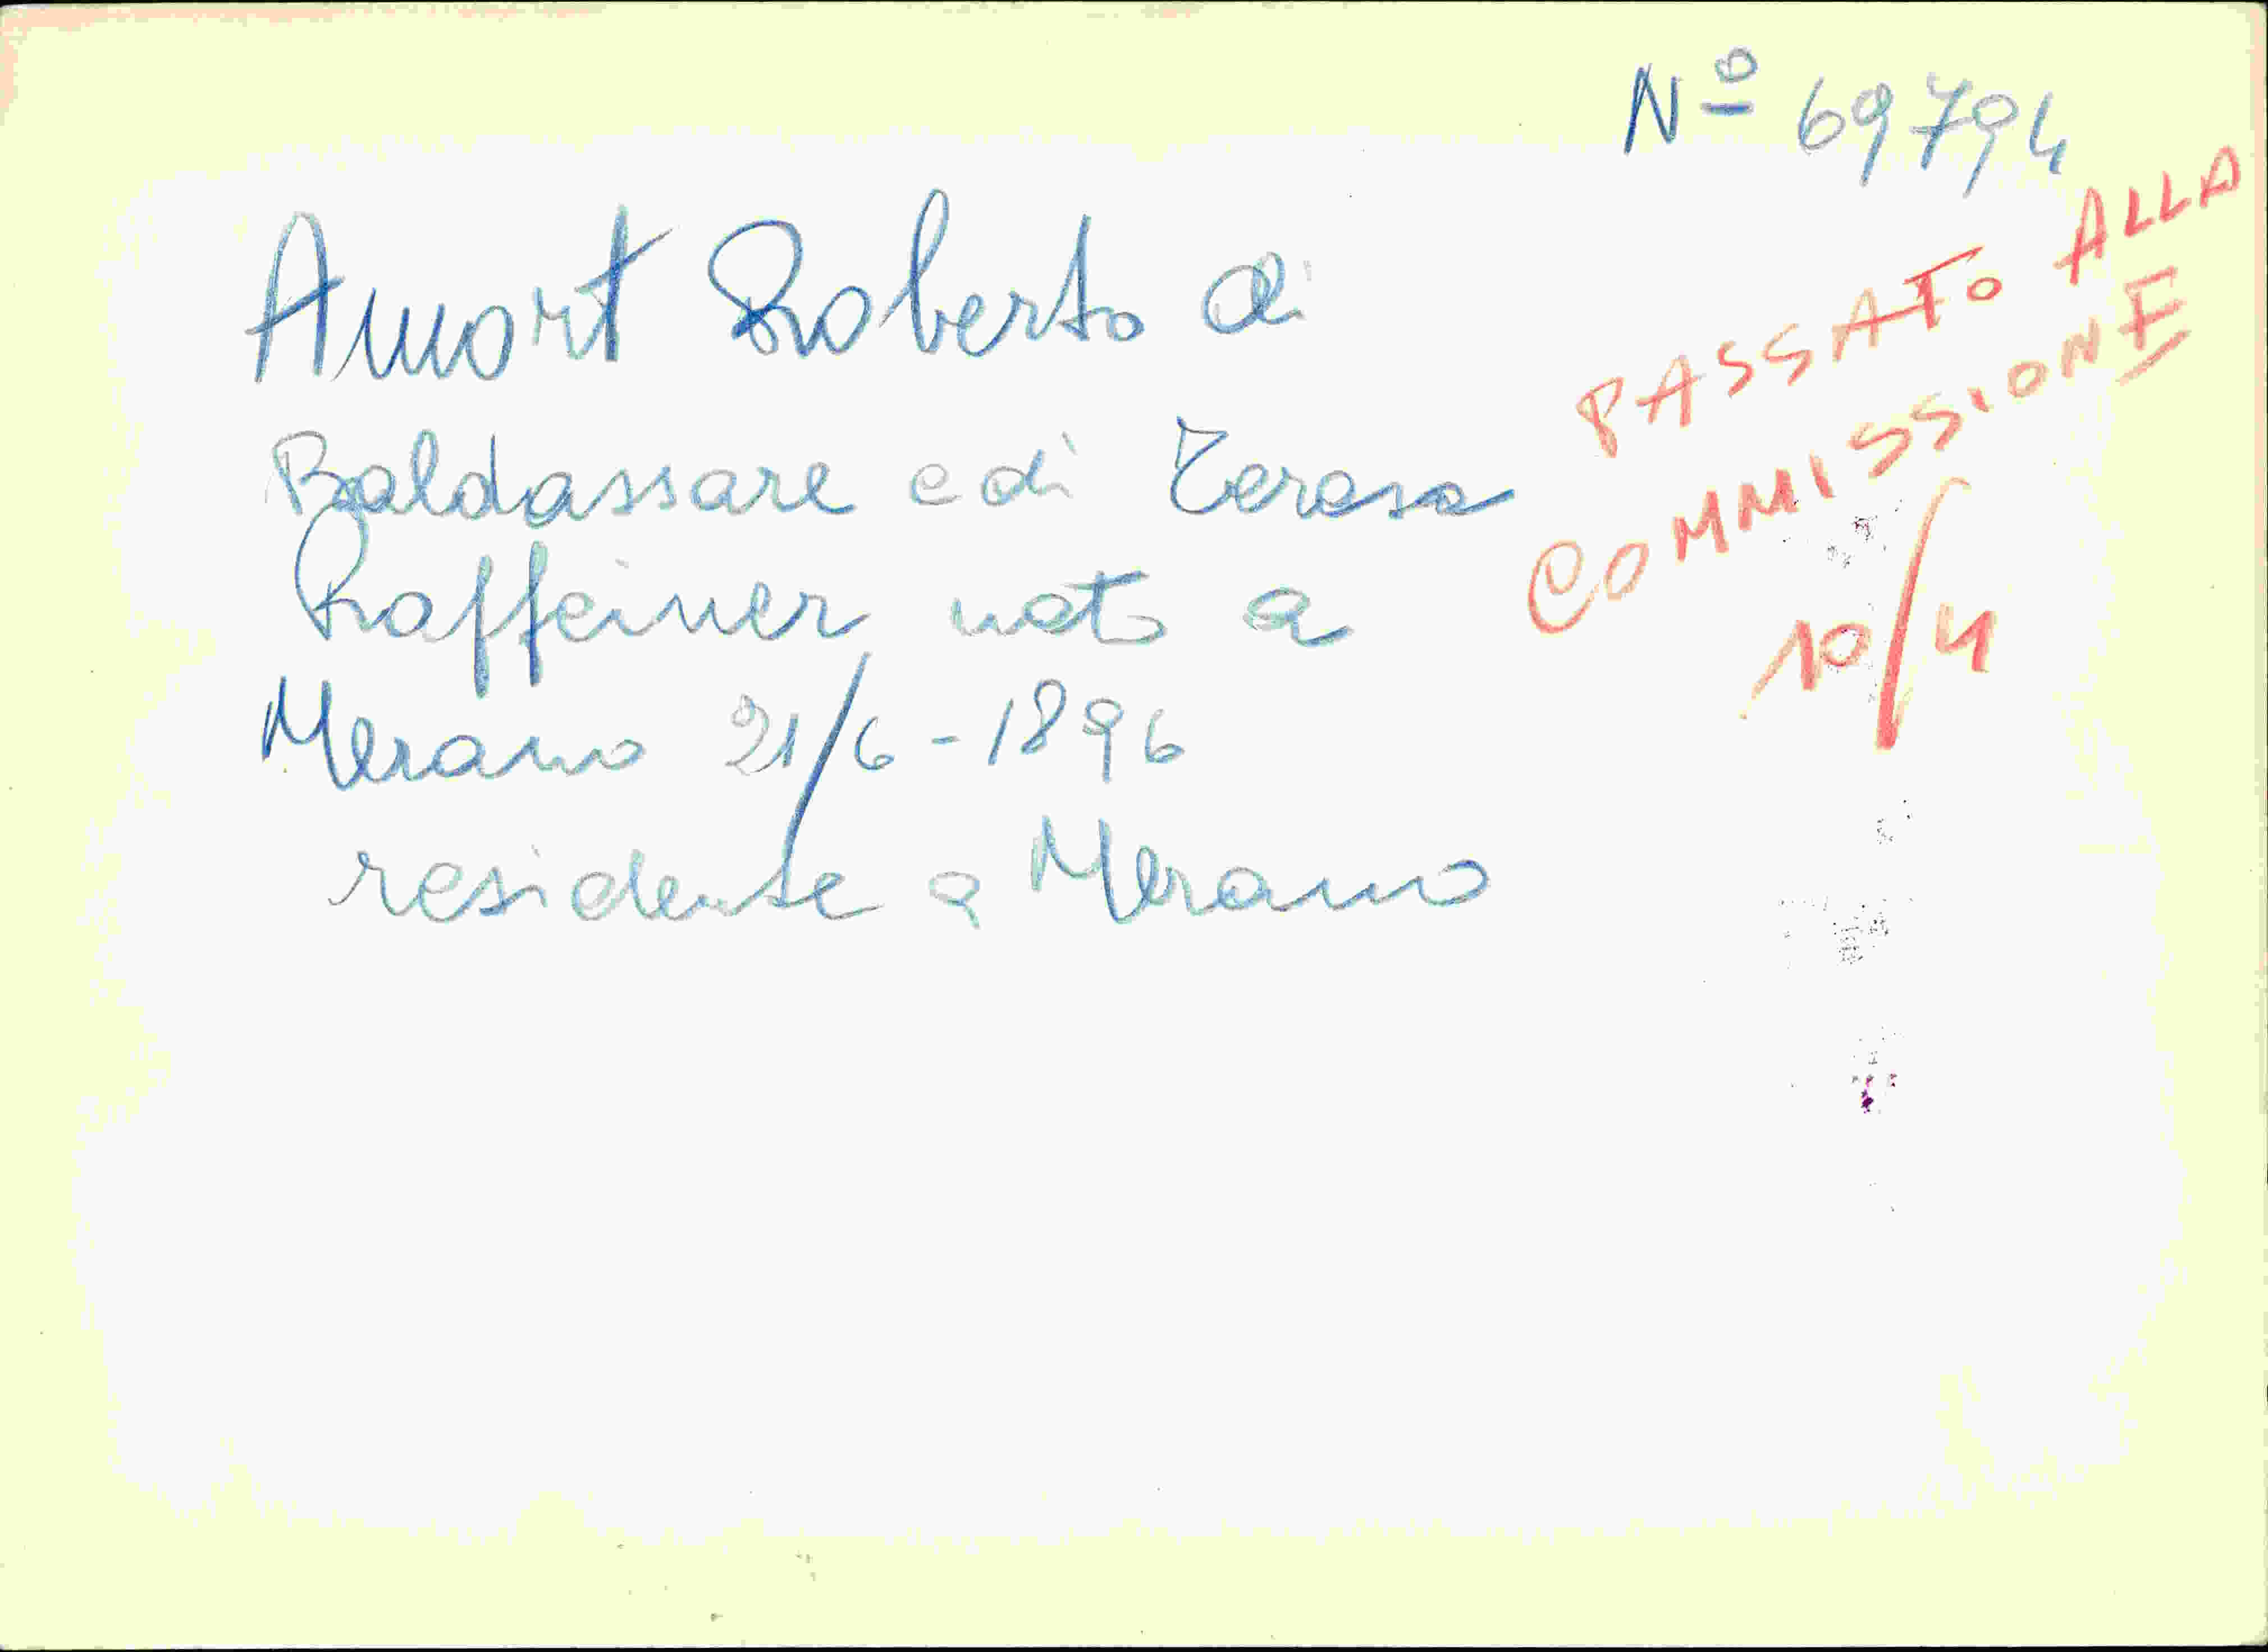 Nº 69794
Amort Roberto di
Baldassare e di Teresa
Raffeiner nato a
Merano 21/6-1896
residente a Merano
PASSATO ALLA
COMMISSIONE
10/4